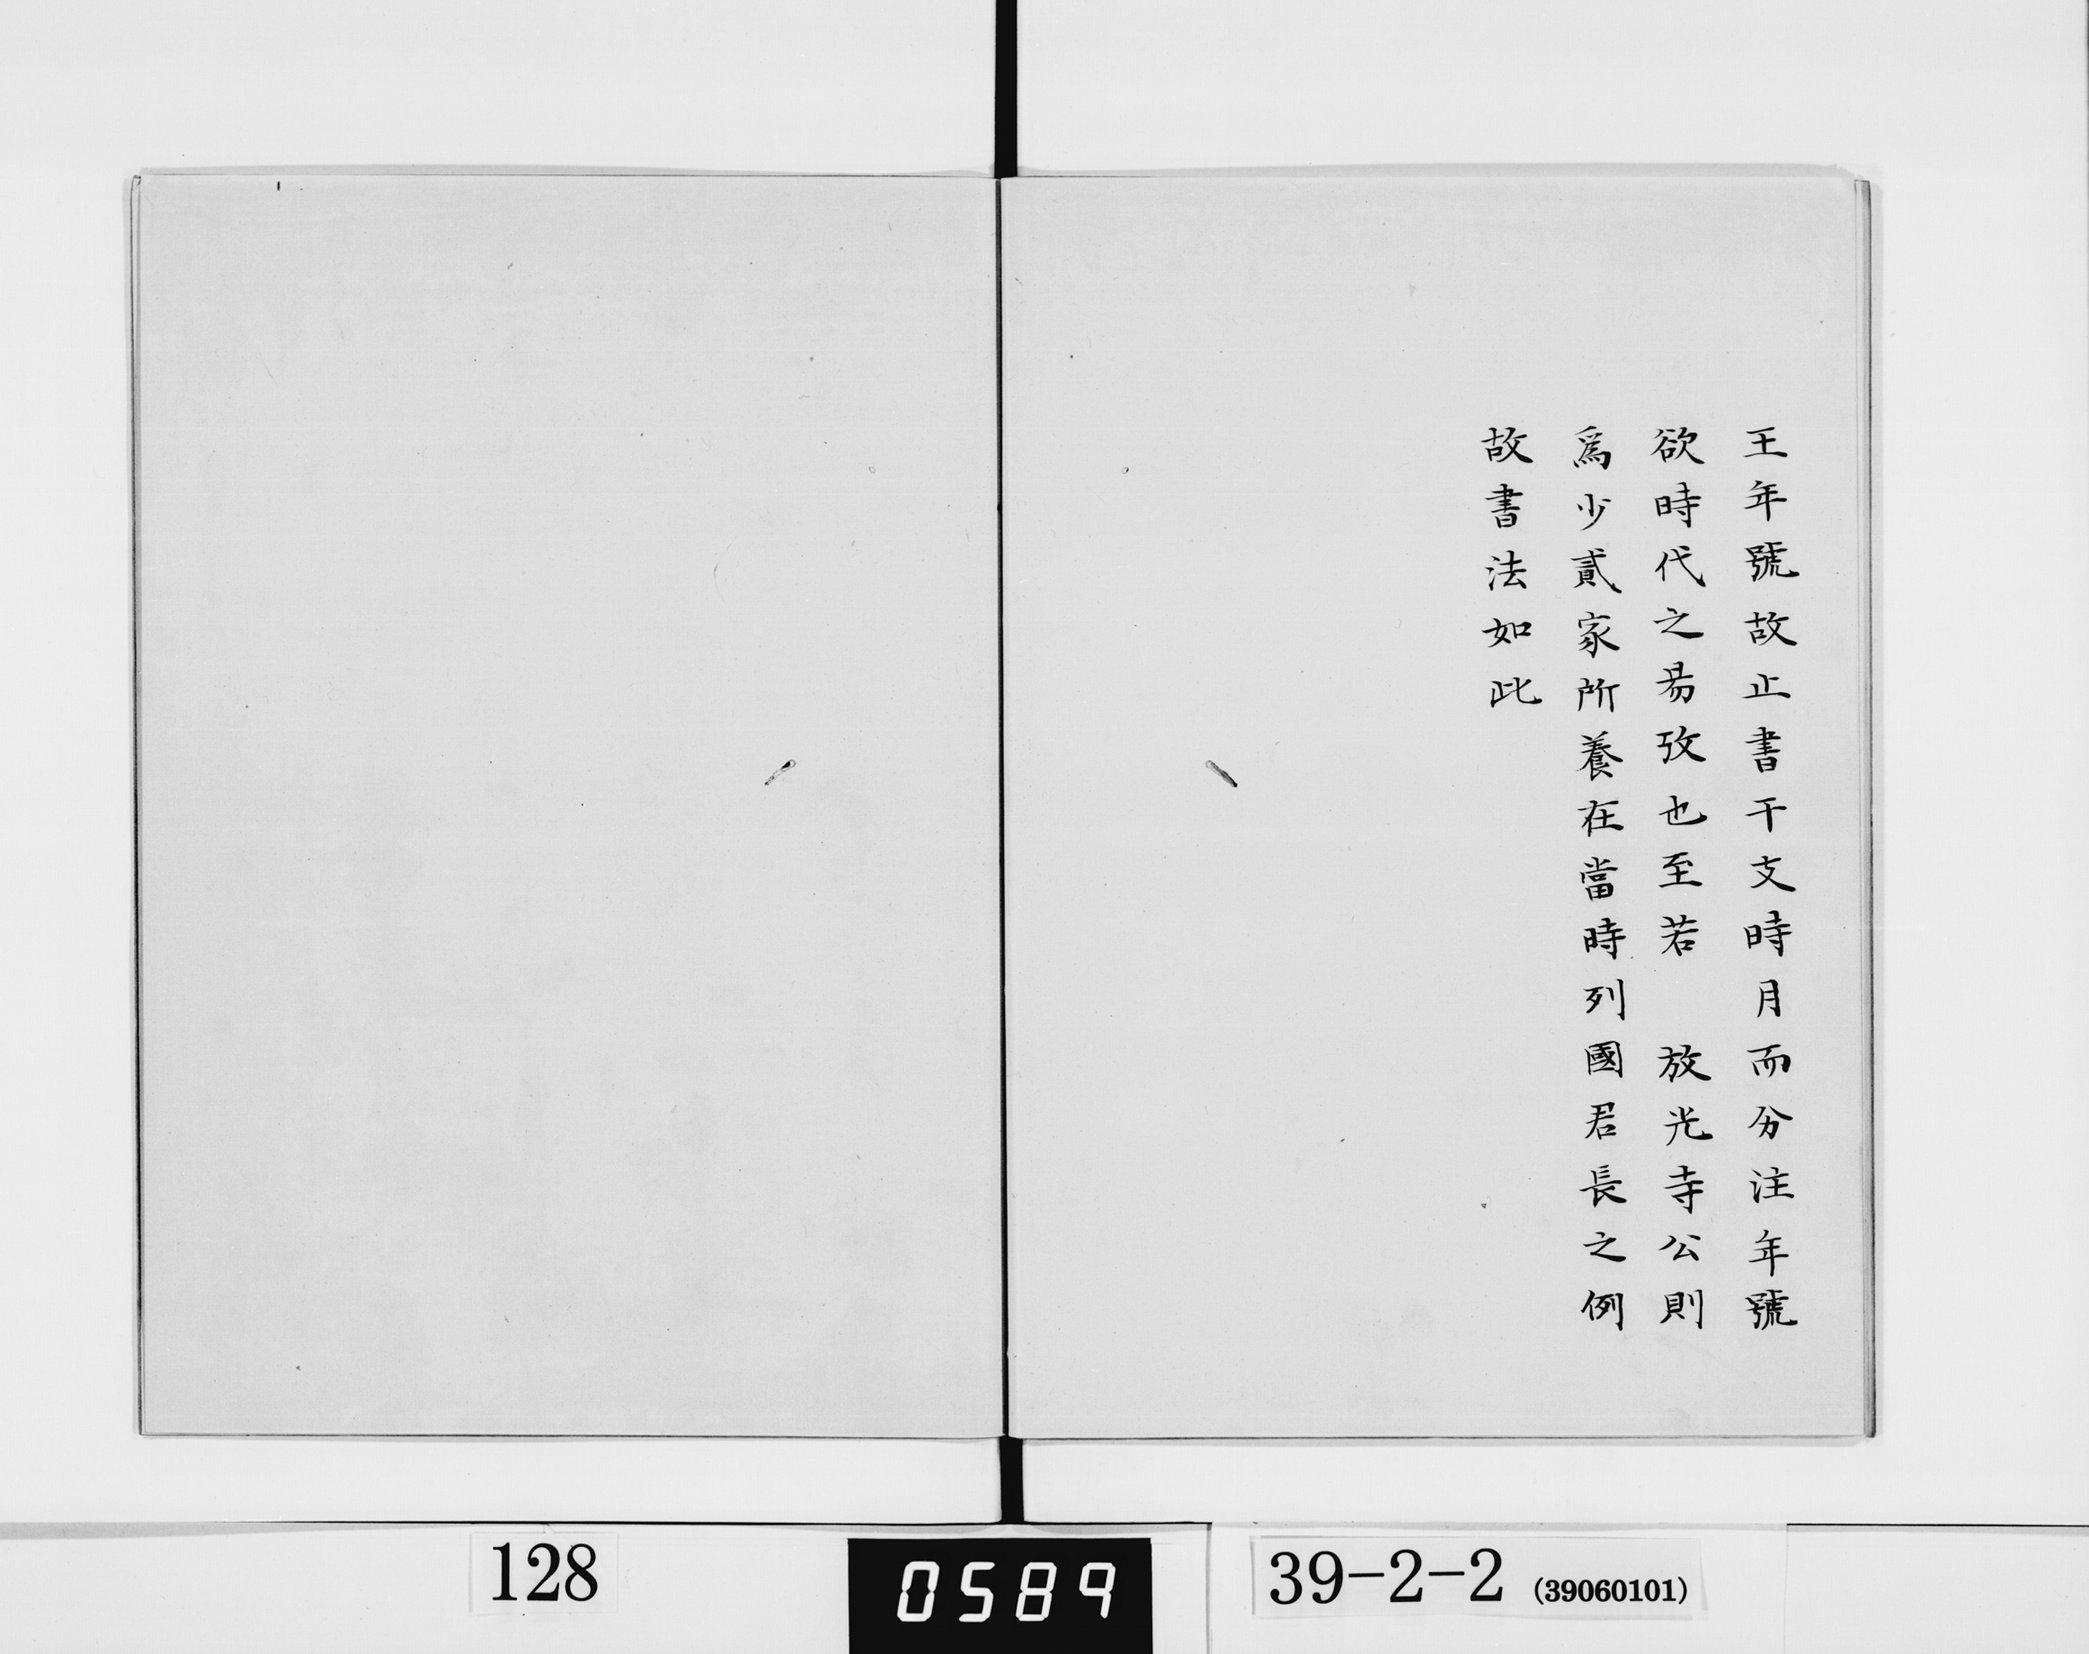 王年號故止書干支時月而分注年號
欲時代之易攷也至若　放光寺公則
爲少貳家所養在當時列國君長之例
故書法如此
128
0589
39-2-2 (39060101)